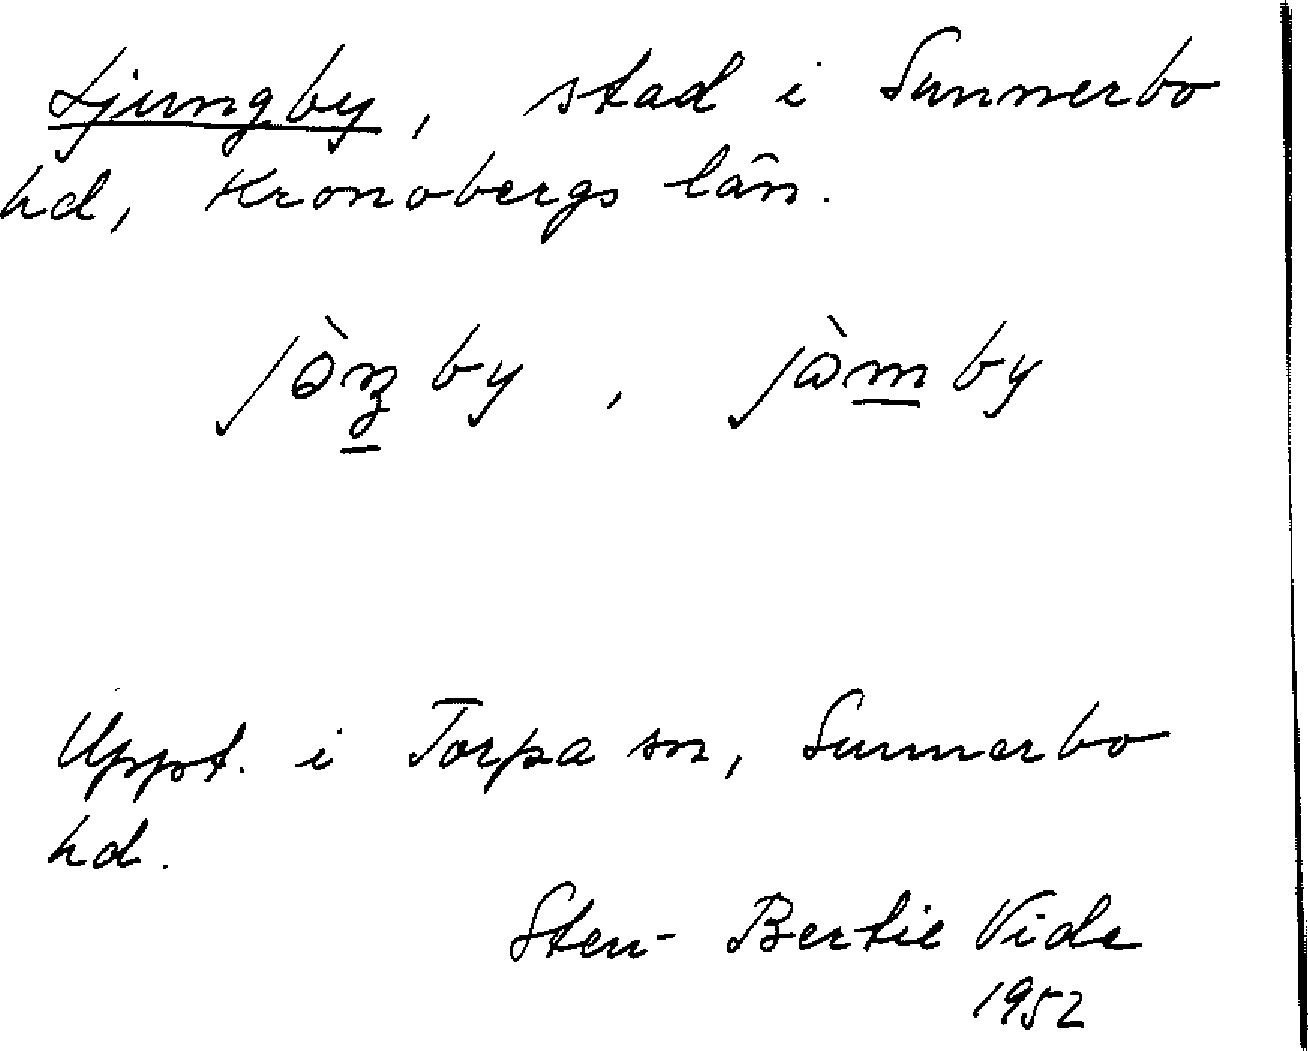 Ljungby, stad i Sunnerbo
hd, Kronobergs län.
jὸŋby, jὸmby
Uppt. i Torpa sn, Sunnerbo
hd.
Sten-Bertil Vide
1952